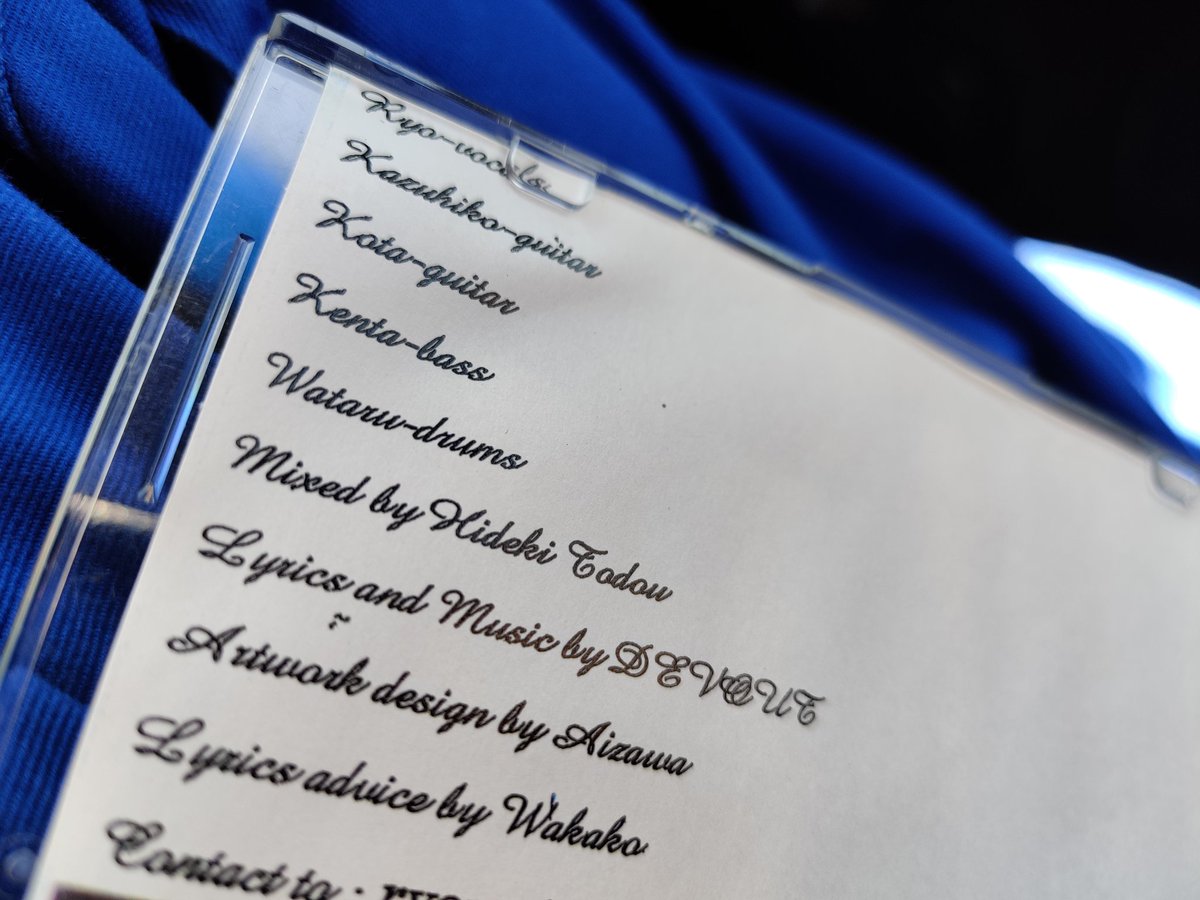 Kyo-vocals
Kazuhiko-guitar
Kota-guitar
Kenta-bass
Wataru-drums
Mixed by Hideki Todou
Lyrics and Music by DEVOUT
Artwork design by Aizawa
Lyrics advice by Wakako
Contact to :